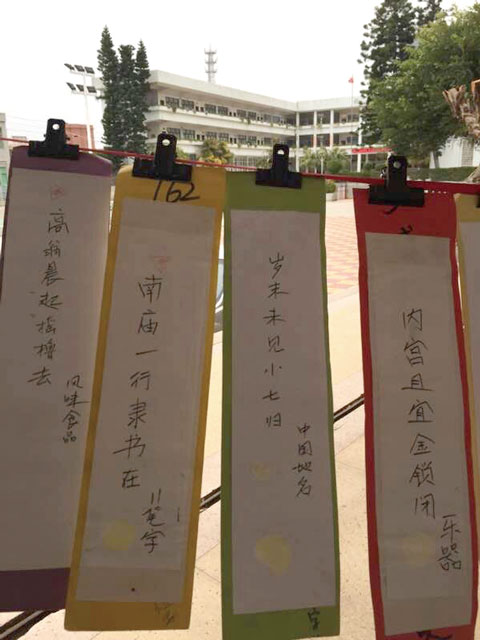 高翁晨起摇橹去
风味食品
162
南庙一行隶书在
11笔字
岁末未见小七归
中国地名
内宫且宜金锁闭
乐器
字